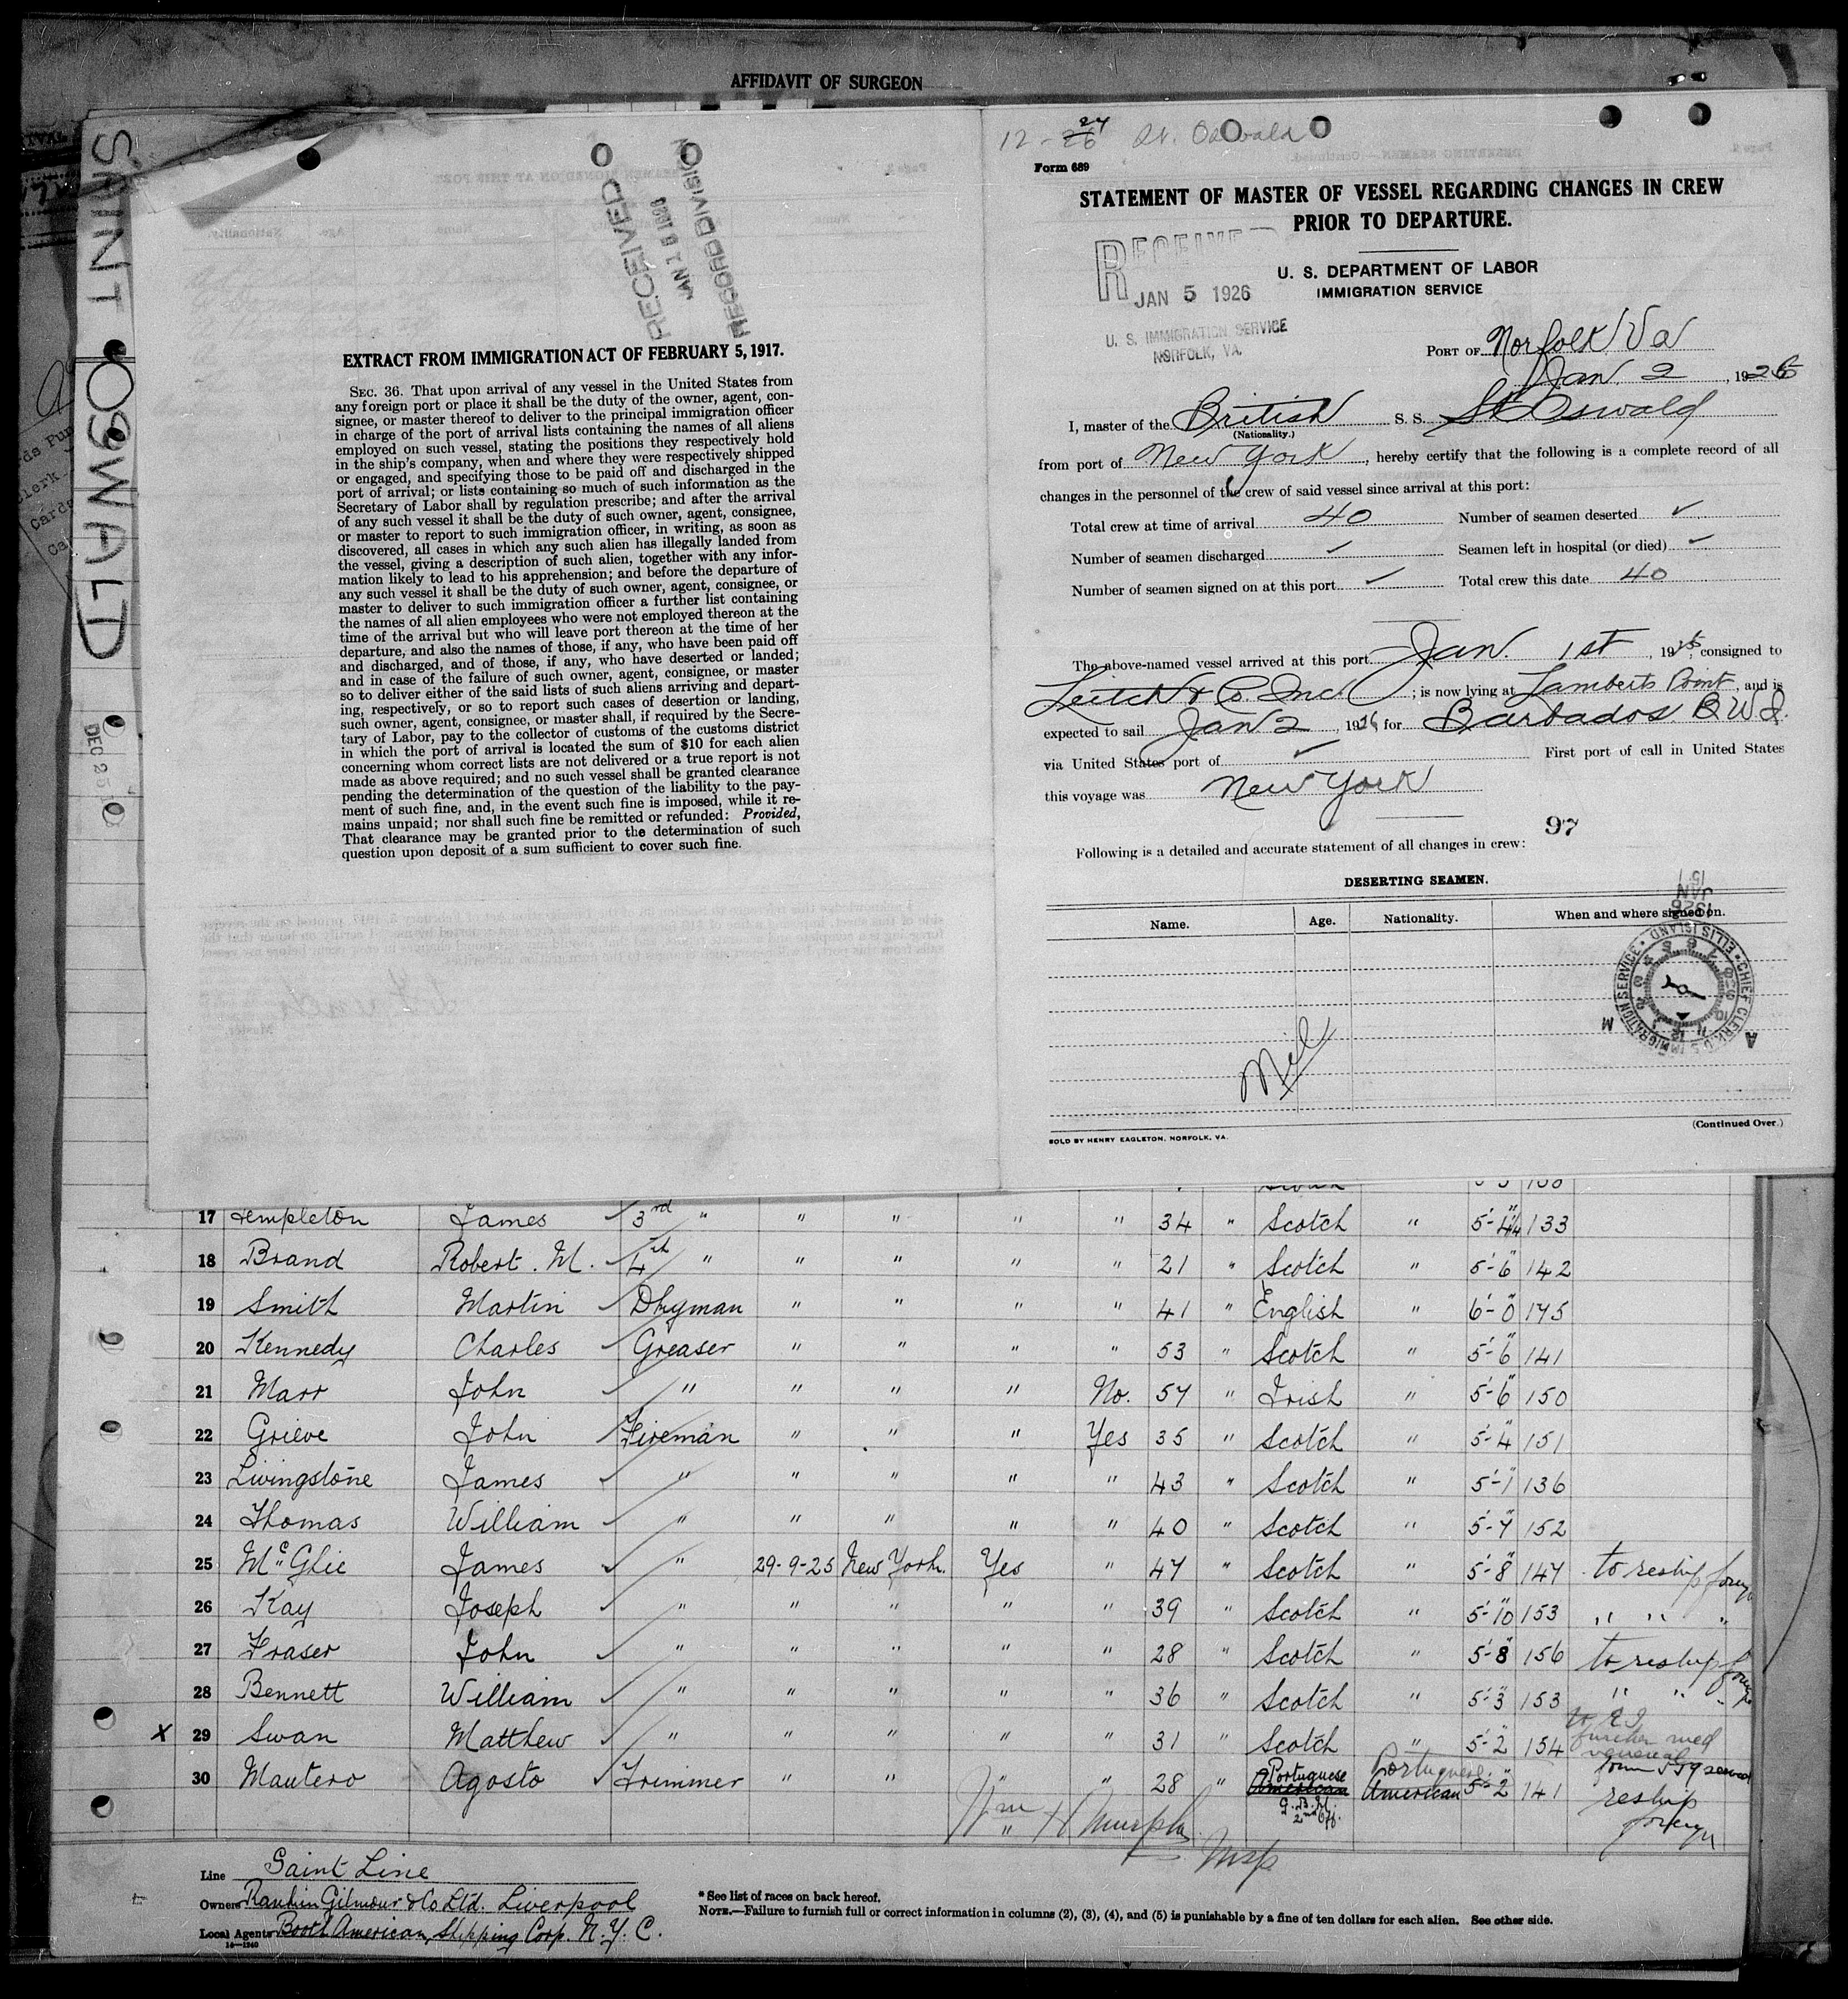 AFFIDAVIT OF SURGEON
SAINT OSWALD
DEC 25
RECEIVED
JAN 1 1926
RECORD DIVISION
EXTRACT FROM IMMIGRATION ACT OF FEBRUARY 5, 1917.
SEC. 36. That upon arrival of any vessel in the United States from
any foreign port or place it shall be the duty of the owner, agent, con-
signee, or master thereof to deliver to the principal immigration officer
in charge of the port of arrival lists containing the names of all aliens
employed on such vessel, stating the positions they respectively hold
in the ship's company, when and where they were respectively shipped
or engaged, and specifying those to be paid off and discharged in the
port of arrival; or lists containing so much of such information as the
Secretary of Labor shall by regulation prescribe; and after the arrival
of any such vessel it shall be the duty of such owner, agent, consignee,
or master to report to such immigration officer, in writing, as soon as
discovered, all cases in which any such alien has illegally landed from
the vessel, giving a description of such alien, together with any infor-
mation likely to lead to his apprehension; and before the departure of
any such vessel it shall be the duty of such owner, agent, consignee, or
master to deliver to such immigration officer a further list containing
the names of all alien employees who were not employed thereon at the
time of the arrival but who will leave port thereon at the time of her
departure, and also the names of those, if any, who have been paid off
and discharged, and of those, if any, who have deserted or landed;
and in case of the failure of such owner, agent, consignee, or master
so to deliver either of the said lists of such aliens arriving and depart-
ing, respectively, or so to report such cases of desertion or landing,
such owner, agent, consignee, or master shall, if required by the Secre-
tary of Labor, pay to the collector of customs of the customs district
in which the port of arrival is located the sum of $10 for each alien
concerning whom correct lists are not delivered or a true report is not
made as above required; and no such vessel shall be granted clearance
pending the determination of the question of the liability to the pay-
ment of such fine, and, in the event such fine is imposed, while it re-
mains unpaid; nor shall such fine be remitted or refunded: Provided,
That clearance may be granted prior to the determination of such
question upon deposit of a sum sufficient to cover such fine.
12-26 24 St. Oswald
Form 689
STATEMENT OF MASTER OF VESSEL REGARDING CHANGES IN CREW
PRIOR TO DEPARTURE.
RECEIVED
JAN 5 1926
U. S. IMMIGRATION SERVICE
NORFOLK, VA.
U. S. DEPARTMENT OF LABOR
IMMIGRATION SERVICE
PORT OF Norfolk Va
Jan 2, 1926
I, master of the British S. S. St Oswald
(Nationality.)
from port of New York, hereby certify that the following is a complete record of all
changes in the personnel of the crew of said vessel since arrival at this port:
Total crew at time of arrival 40 Number of seamen deserted ✓
Number of seamen discharged ✓ Seamen left in hospital (or died) ✓
Number of seamen signed on at this port ✓ Total crew this date 40
The above-named vessel arrived at this port Jan. 1st, 1926, consigned to
Leitch & Co. Inc; is now lying at Lamberts Point, and is
expected to sail Jan 2, 1926 for Barbados B W I.
via United States port of ✓ First port of call in United States
this voyage was New York
97
Following is a detailed and accurate statement of all changes in crew:
DESERTING SEAMEN.
Name. Age. Nationality. When and where signed on.
1926 JAN 15
CHIEF CLERK, U.S. IMMIGRATION SERVICE ELLIS ISLAND
A M
Nil
SOLD BY HENRY EAGLETON, NORFOLK, VA.
(Continued Over.)
17 Templeton James ✓ 3rd " " " " " 34 " Scotch " 5'-4" 133
18 Brand Robert. M. ✓ 4th " " " " " 21 " Scotch " 5'-6" 142
19 Smith Martin ✓ Dkyman " " " " 41 " English " 6'-0" 175
20 Kennedy Charles ✓ Greaser " " " " 53 " Scotch " 5'-6" 141
21 Marr John ✓ " " " " No. 57 " Irish " 5'-6" 150
22 Grieve John Fireman " " " Yes 35 " Scotch " 5'-4" 151
23 Livingstone James ✓ " " " " " 43 " Scotch " 5'-7" 136
24 Thomas William ✓ " " " " " 40 " Scotch " 5'-7" 152
25 McGhie James ✓ " 29-9-25 New York. Yes " 47 " Scotch " 5'-8" 147 to reship foreign
26 Kay Joseph ✓ " " " " " 39 " Scotch " 5'-10" 153 " " "
27 Fraser John ✓ " " " " " 28 " Scotch " 5'-8" 156 to reship foreign
28 Bennett William ✓ " " " " " 36 " Scotch " 5'-3" 153 " " "
X 29 Swan Matthew ✓ " " " " " 31 " Scotch " 5'-2" 154 to E I further med venereal
30 Mautero Agosto ✓ Trimmer " " " " 28 " American Portuguese G.B.M. 2nd Off. American Portuguese 5'-2" 141 form 579 served reship foreign
Wm H Murphy Insp
Line Saint Line
Owners Rankin Gilmour & Co Ltd. Liverpool
Local Agents Booth American Shipping Corp. N. Y. C.
* See list of races on back hereof.
NOTE.—Failure to furnish full or correct information in columns (2), (3), (4), and (5) is punishable by a fine of ten dollars for each alien. See other side.